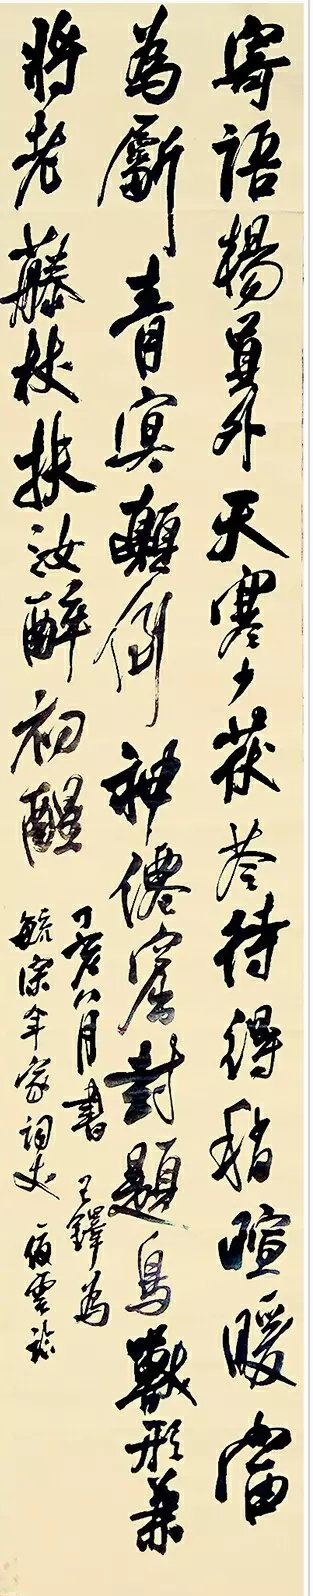 寄語楊員外天寒少茯苓待得稍暄暖當
為斸青冥顛倒神僊窟封題鳥獸形兼
將老藤杖扶汝醉初醒
丁亥八月書 王鐸為
毓宗年家詞丈